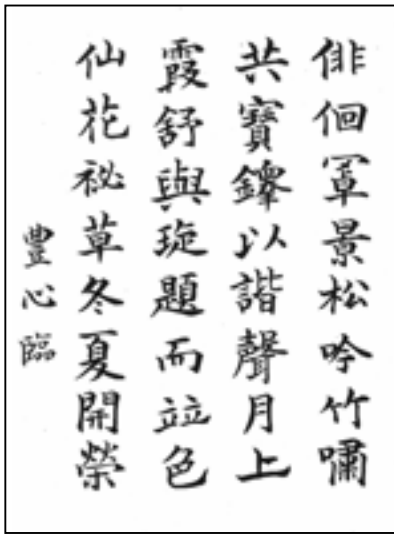 俳佪罩景松吟竹嘯
共寶鐸以諧聲月上
霞舒與琁題而竝色
仙花祕草冬夏開榮
豐心臨